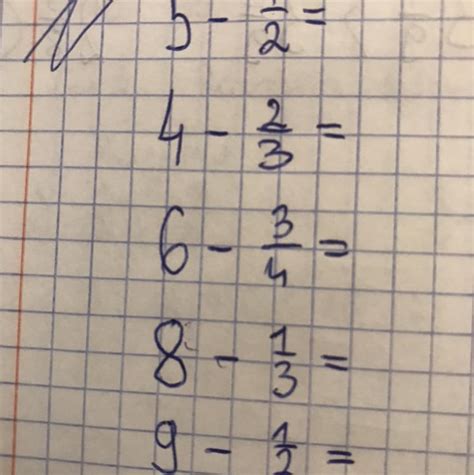 5 - 1/2 =
4 - 2/3 =
6 - 3/4 =
8 - 1/3 =
9 - 1/2 =